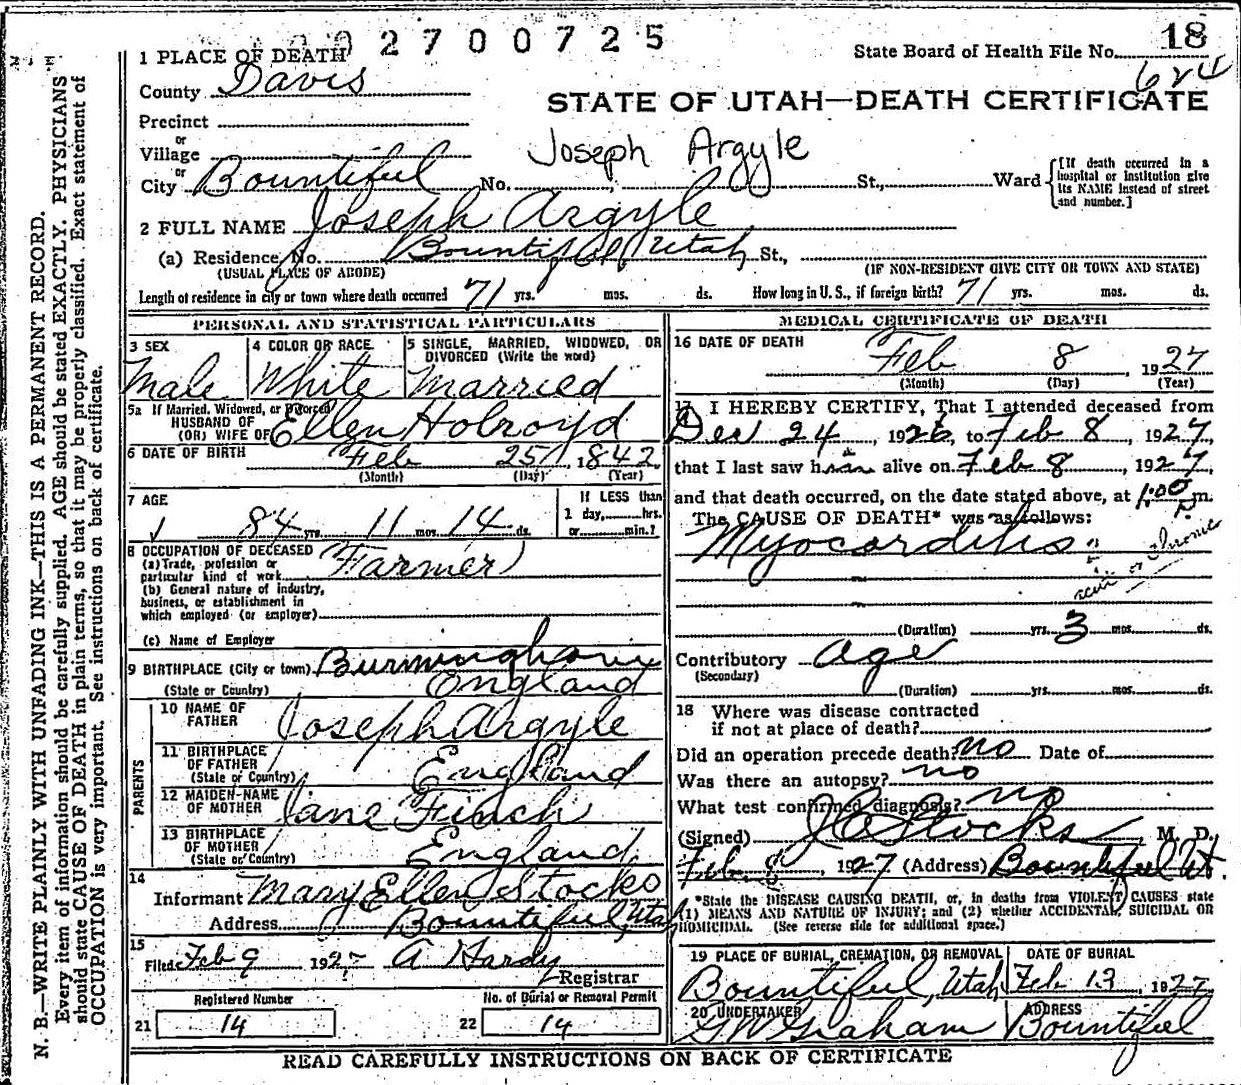 02700725
18
State Board of Health File No.
624
1 PLACE OF DEATH
County Davis
STATE OF UTAH—DEATH CERTIFICATE
Precinct
or
Village
Joseph Argyle
or
City Bountiful No. St., Ward
[If death occurred in a hospital or institution give its NAME instead of street and number.]
2 FULL NAME Joseph Argyle
(a) Residence, No. Bountiful, Utah St.,
(USUAL PLACE OF ABODE) (IF NON-RESIDENT GIVE CITY OR TOWN AND STATE)
Length of residence in city or town where death occurred 71 yrs. mos. ds. How long in U. S., if foreign birth? 71 yrs. mos. ds.
PERSONAL AND STATISTICAL PARTICULARS
3 SEX 4 COLOR OR RACE 5 SINGLE, MARRIED, WIDOWED, OR
DIVORCED (Write the word)
Male White Married
5a If Married, Widowed, or Divorced
HUSBAND OF
(OR) WIFE OF Ellen Holroyd
6 DATE OF BIRTH Feb 25 1842
(Month) (Day) (Year)
7 AGE
84 yrs. 11 mos. 14 ds.
If LESS than
1 day, hrs.
or min.?
8 OCCUPATION OF DECEASED
(a) Trade, profession or
particular kind of work Farmer
(b) General nature of industry,
business, or establishment in
which employed (or employer)
(c) Name of Employer
9 BIRTHPLACE (City or town) Burmingham
(State or Country) England
PARENTS
10 NAME OF
FATHER Joseph Argyle
11 BIRTHPLACE
OF FATHER
(State or Country) England
12 MAIDEN-NAME
OF MOTHER Jane Finch
13 BIRTHPLACE
OF MOTHER
(State or Country) England
14
Informant Mary Ellen Stocks
Address Bountiful, Utah
15
Filed Feb 9 1927 A Hardy
Registrar
Registered Number No. of Burial or Removal Permit
21 14 22 14
MEDICAL CERTIFICATE OF DEATH
16 DATE OF DEATH
Feb 8 1927
(Month) (Day) (Year)
17 I HEREBY CERTIFY, That I attended deceased from
Dec 24, 1926, to Feb 8, 1927,
that I last saw him alive on Feb 8, 1927,
and that death occurred, on the date stated above, at 1:00 P m.
The CAUSE OF DEATH* was as follows:
Myocarditis
? acute or chronic
(Duration) yrs. 3 mos. ds.
Contributory age
(Secondary)
(Duration) yrs. mos. ds.
18 Where was disease contracted
if not at place of death?
Did an operation precede death? no Date of
Was there an autopsy? no
What test confirmed diagnosis? no
(Signed) J C Stocks M. D.
Feb. 8, 1927 (Address) Bountiful Ut.
*State the DISEASE CAUSING DEATH, or, in deaths from VIOLENT CAUSES state
(1) MEANS AND NATURE OF INJURY; and (2) whether ACCIDENTAL, SUICIDAL OR
HOMICIDAL. (See reverse side for additional space.)
19 PLACE OF BURIAL, CREMATION, OR REMOVAL DATE OF BURIAL
Bountiful, Utah Feb 13, 1927
20 UNDERTAKER ADDRESS
G W Graham Bountiful
READ CAREFULLY INSTRUCTIONS ON BACK OF CERTIFICATE
N. B.—WRITE PLAINLY WITH UNFADING INK—THIS IS A PERMANENT RECORD.
Every item of information should be carefully supplied. AGE should be stated EXACTLY. PHYSICIANS
should state CAUSE OF DEATH in plain terms, so that it may be properly classified. Exact statement of
OCCUPATION is very important. See instructions on back of certificate.